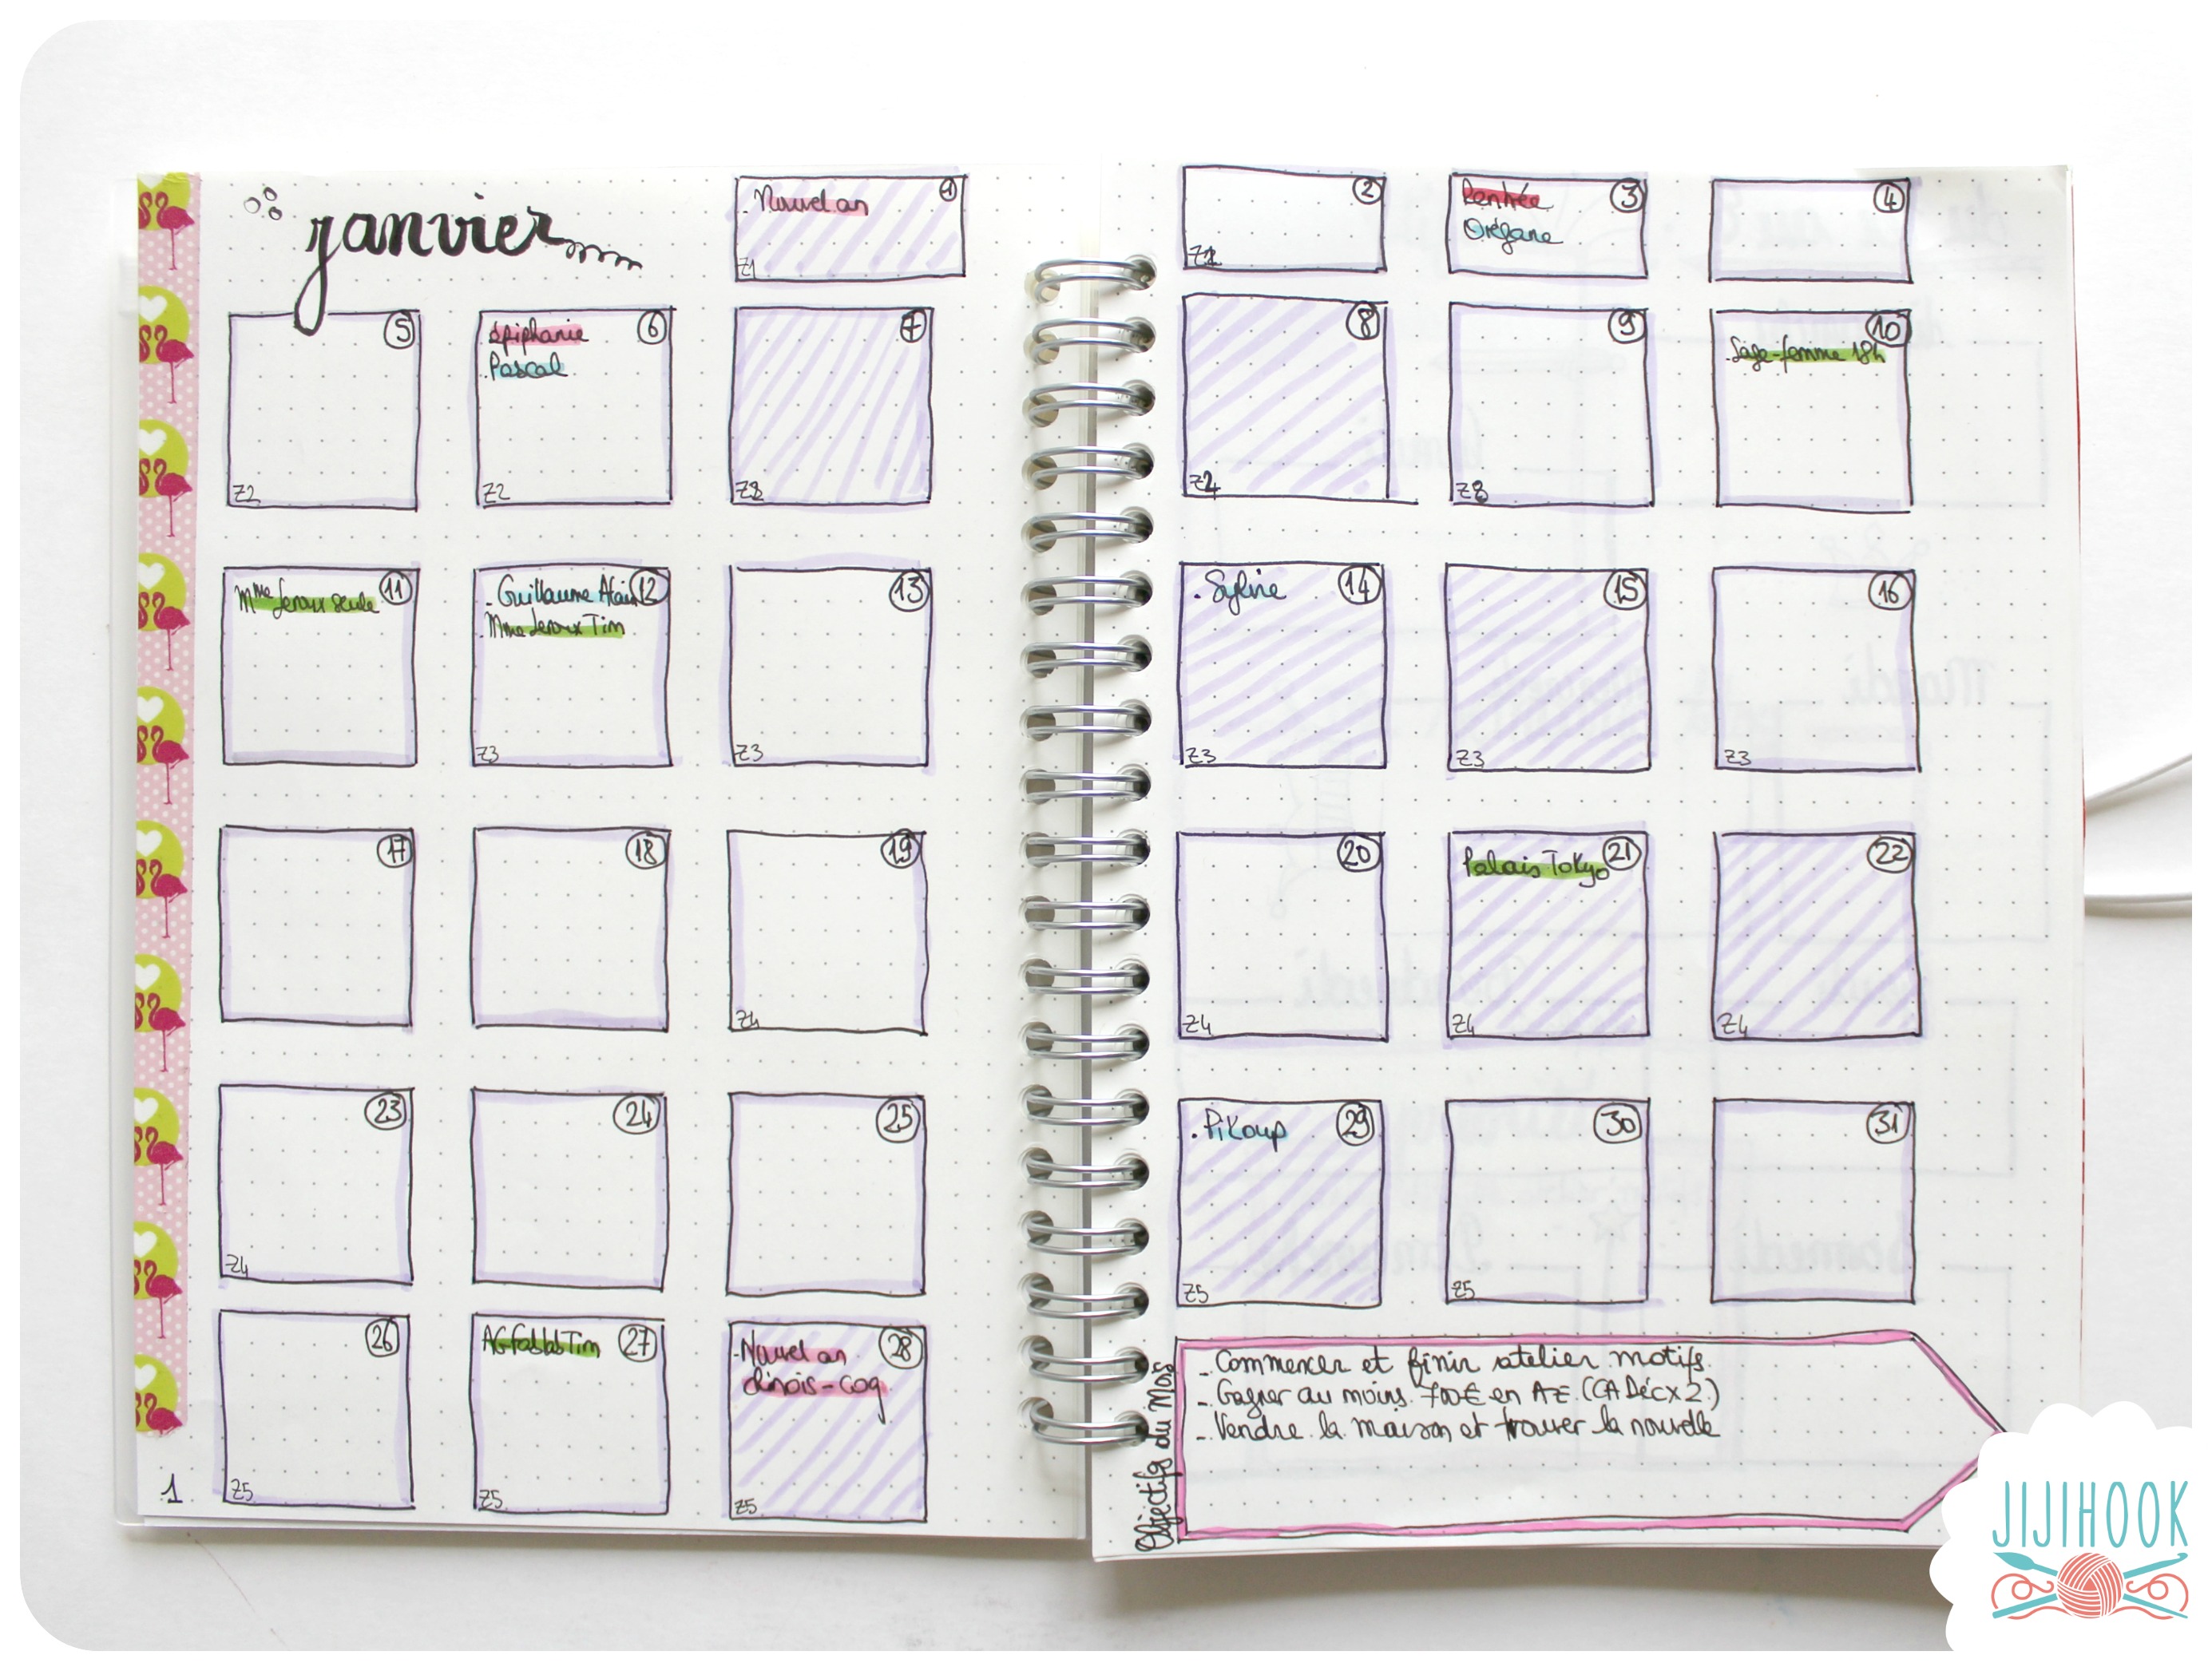 janvier
1
. Nouvel an
Z1
2
3
Rentrée
Orégane
4
5
Z2
6
Epiphanie
.Pascal
Z2
7
8
9
10
.Sage-femme 18h
11
Mme Leroux seule
12
. Guillaume Alain
.Mme Leroux Tim
Z3
13
Z3
14
. Sylvie
Z3
15
Z3
16
Z3
17
18
19
Z4
20
Z4
21
Palais Tokyo
Z4
22
Z4
23
Z4
24
25
26
Z5
27
Tim
Z5
28
-Nouvel an
chinois-coq
Z5
29
. Pikoup
Z5
30
Z5
31
1
Objectifs du Mois
- Commencer et finir atelier motifs.
- Gagner au moins 700€ en AE (CA Déc x 2)
- Vendre la maison et trouver la nouvelle
JIJIHOOK